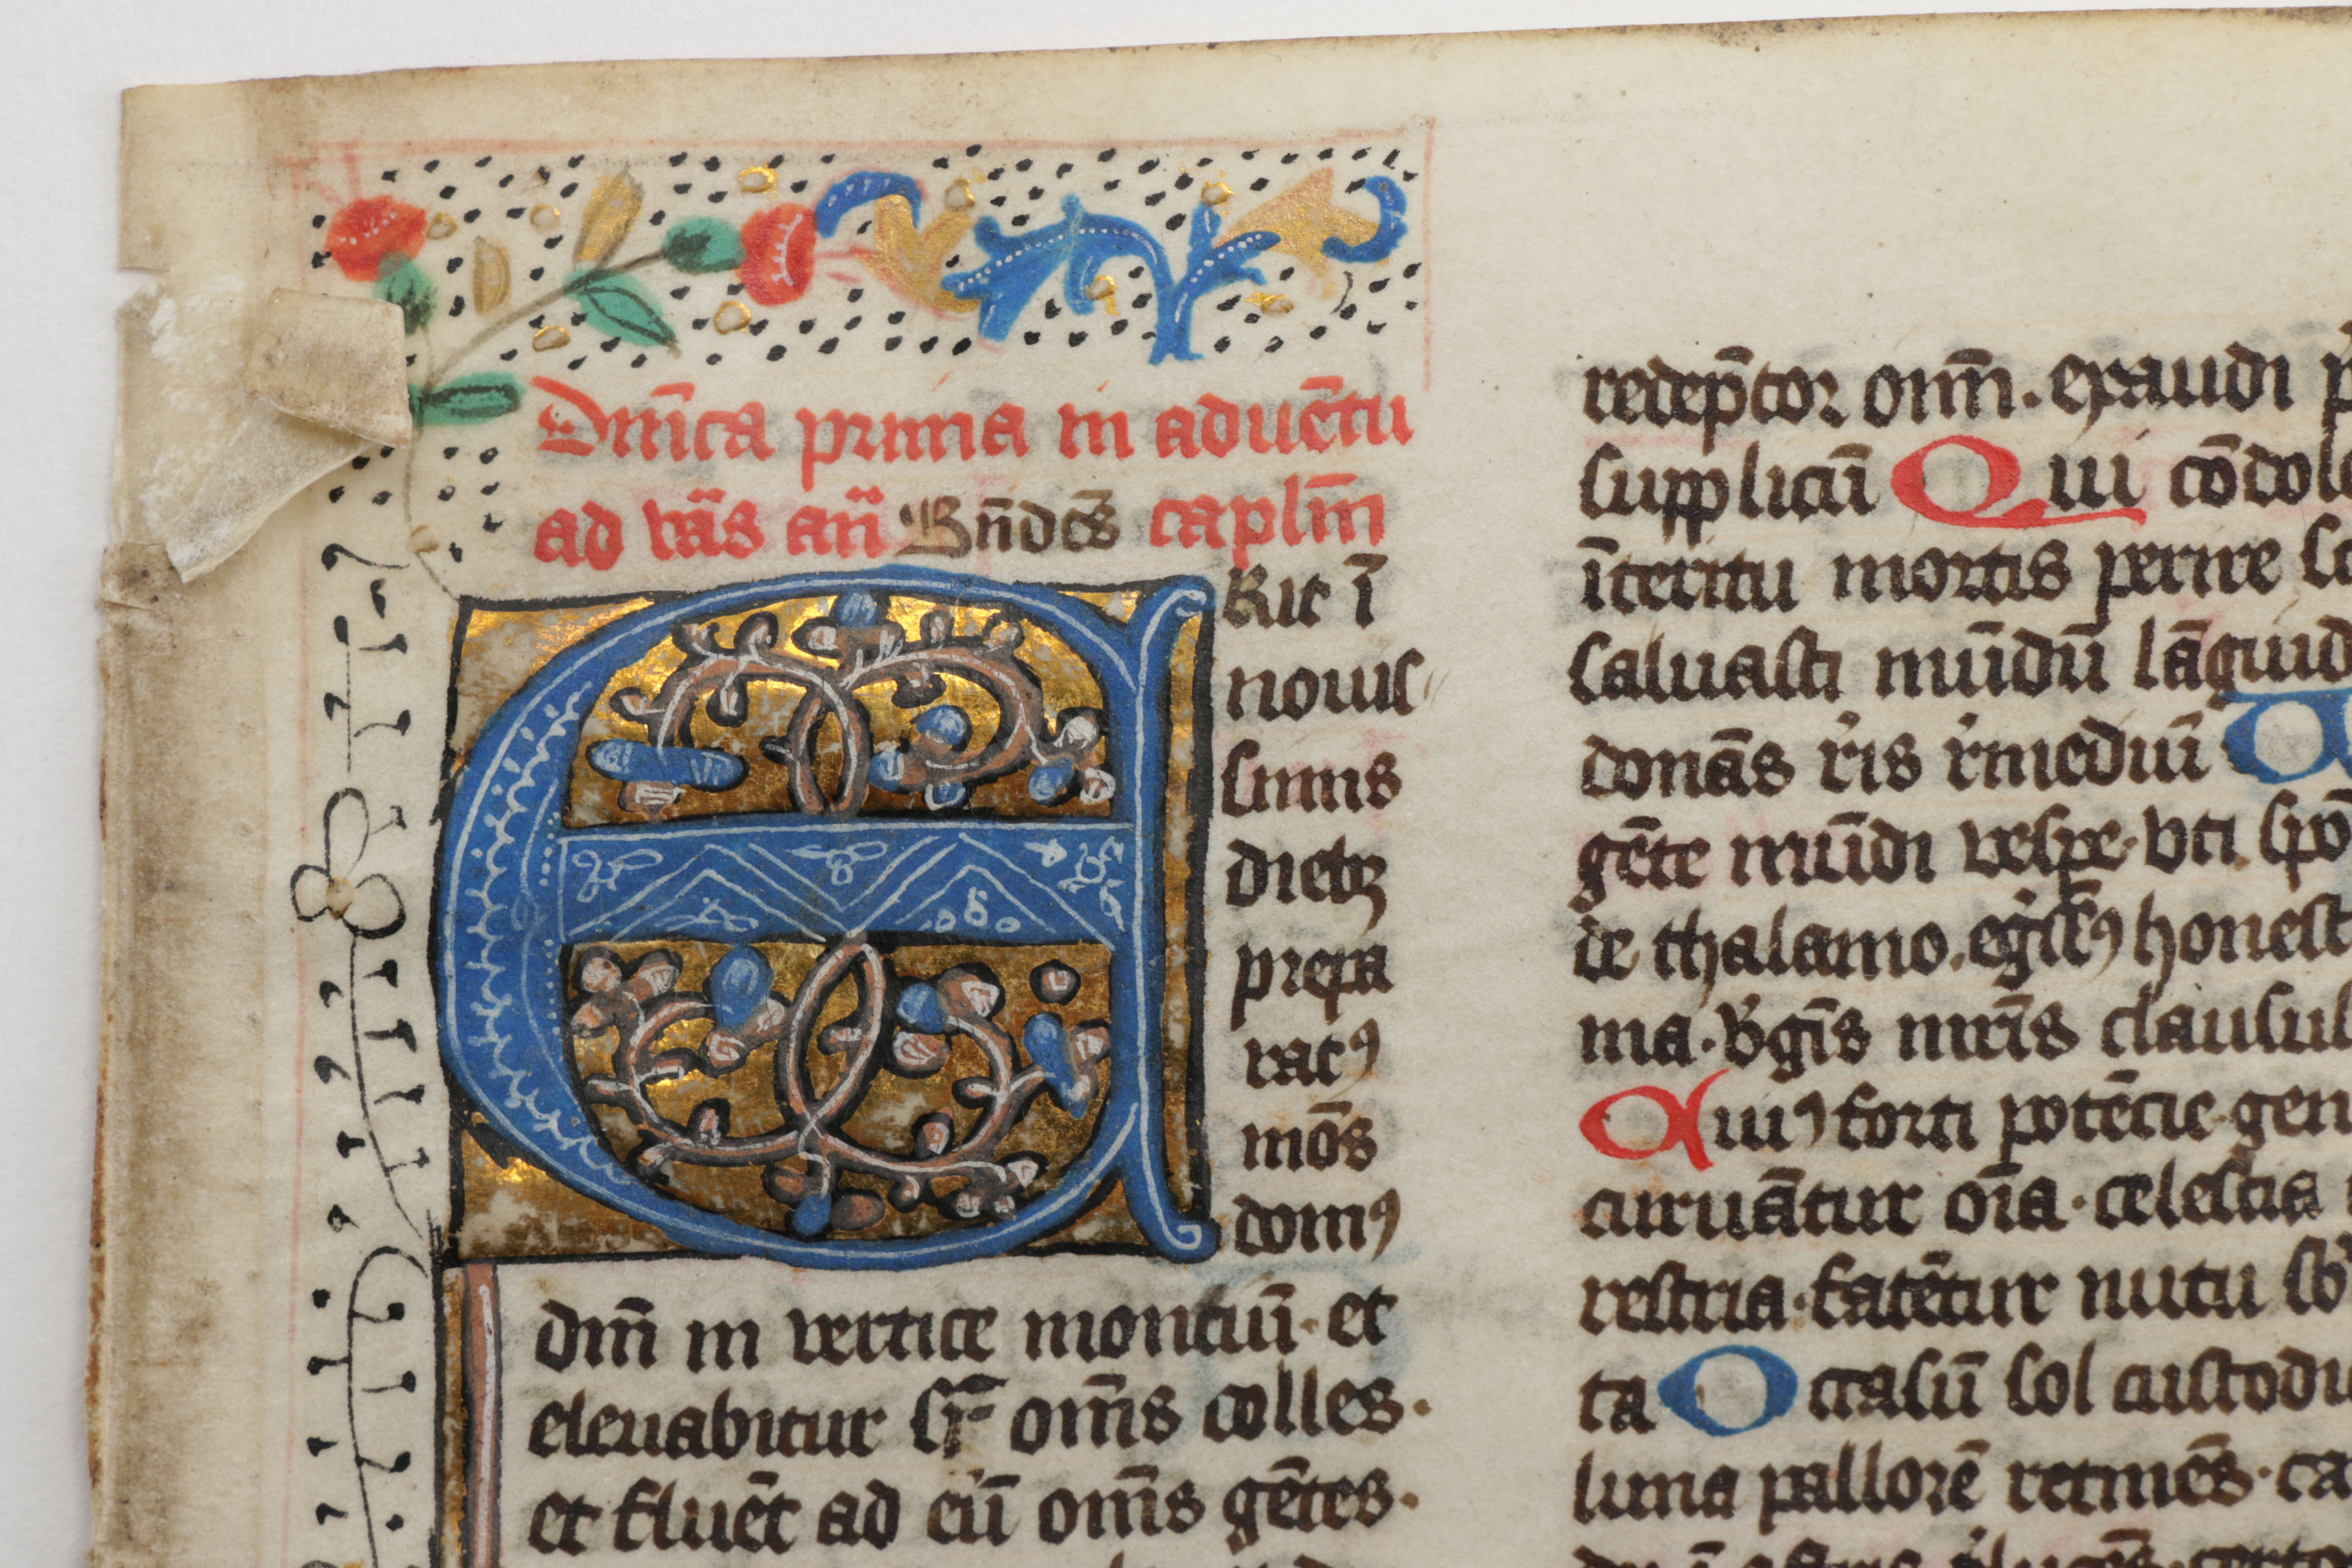 Dnı̄ca prima in aduētu
ad vās an̄ Bn̄dcs̄ caplm̄
ERit ī
nouis
simis
dieb
prepa
ratꝰ
mōs
domꝰ
dnı̄ in vertice montiū · et
eleuabitur sr̄ om̄s colles ·
et fluēt ad eū om̄s gētes ·
redēptor om̄ . exaudi
supplicū Qui cōdol
īteritu mortis perire
saluasti mūdū lāguid
donās r̓is r̓mediū
gēte mūdi vespe · vti
de thalamo . egr̄ssꝰ honest
ma · v̓gīs mr̄is clausul
Cuiꝰ forti potētie gen
curuātur oīa · celestia
restria · fatētur nutu
ta Occasū sol custodi
luna pallorē retinēs ·